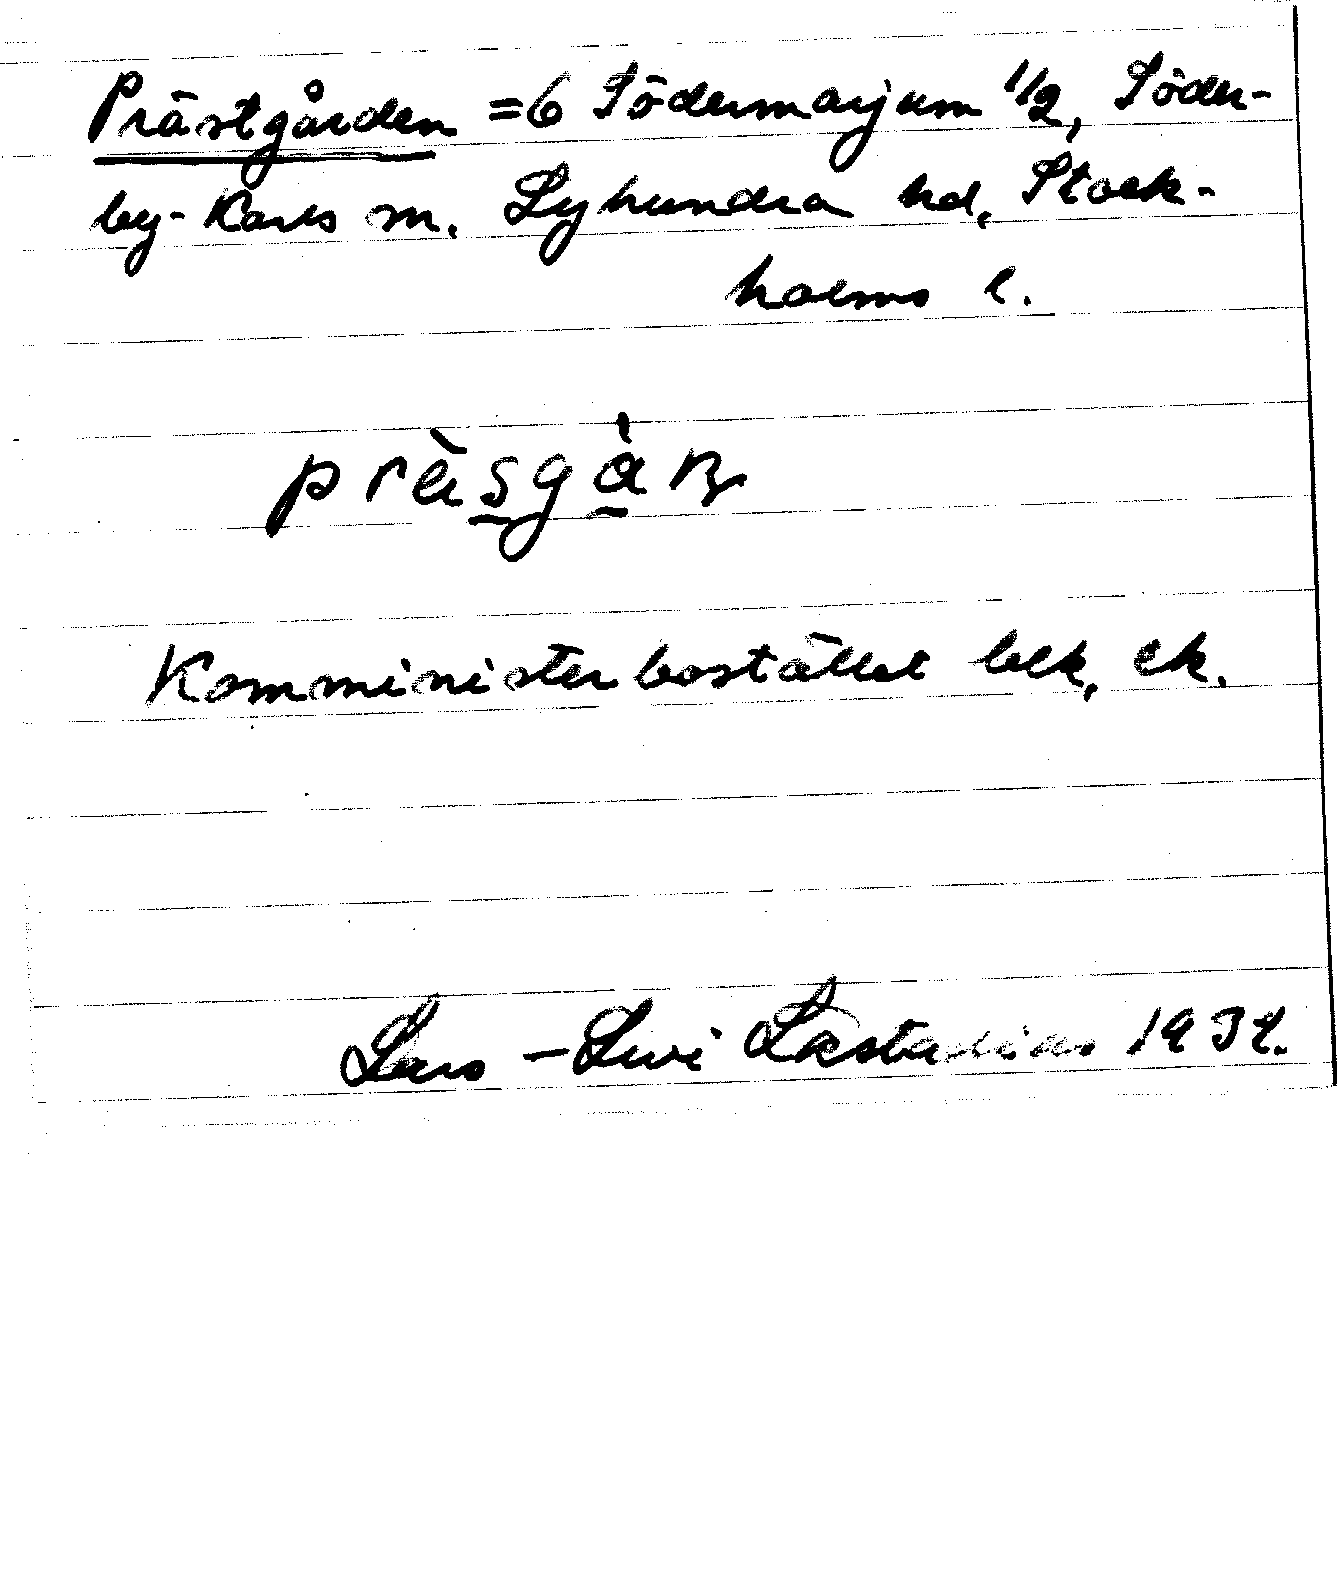 Prästgården =6 Södermarjum 1/2, Söder-
by-Karls sn. Lyhundra hd, Stock-
holms l.
prä̀sgɑ̀ɳ
Komministerbostället blk, ek.
Lars-Levi Læstadius 1932.